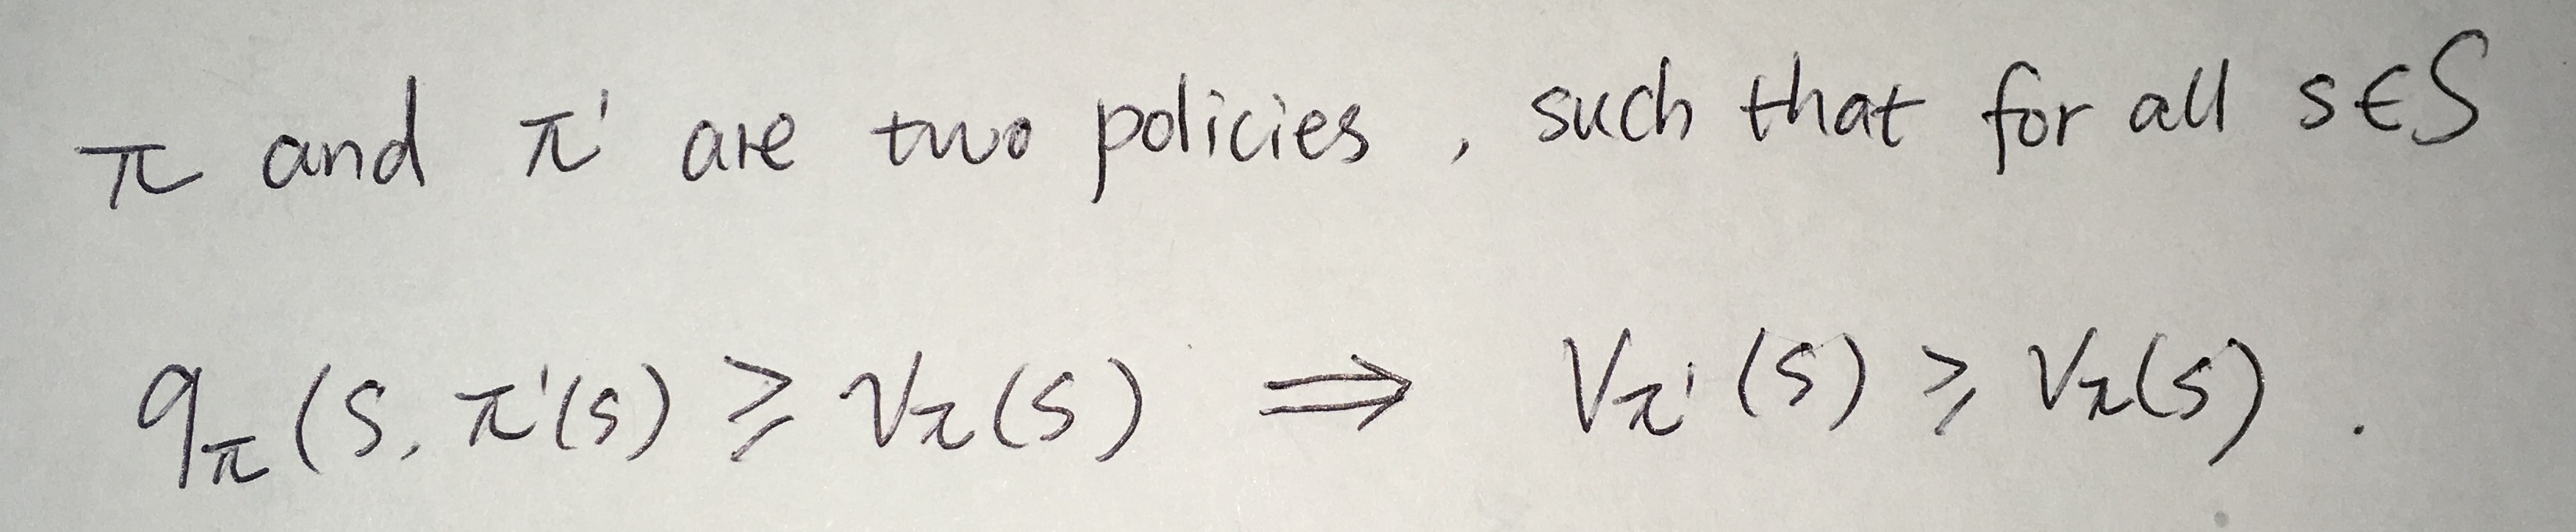 π and π' are two policies, such that for all s∈S
qπ(s, π'(s) ≥ Vπ(s) ⟹ Vπ'(s) ≥ Vπ(s).